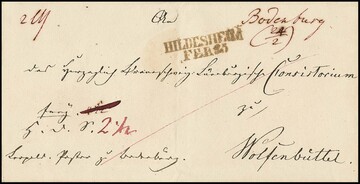 An
Bodenburg
24/2
HILDESHEIM
FEB 23
das Herzoglich Braunschweig-Lüneburgische Consistorium
zu
H. D. S. 2½
Wolfenbüttel.
Leopold. Pastor zu Bodenburg.